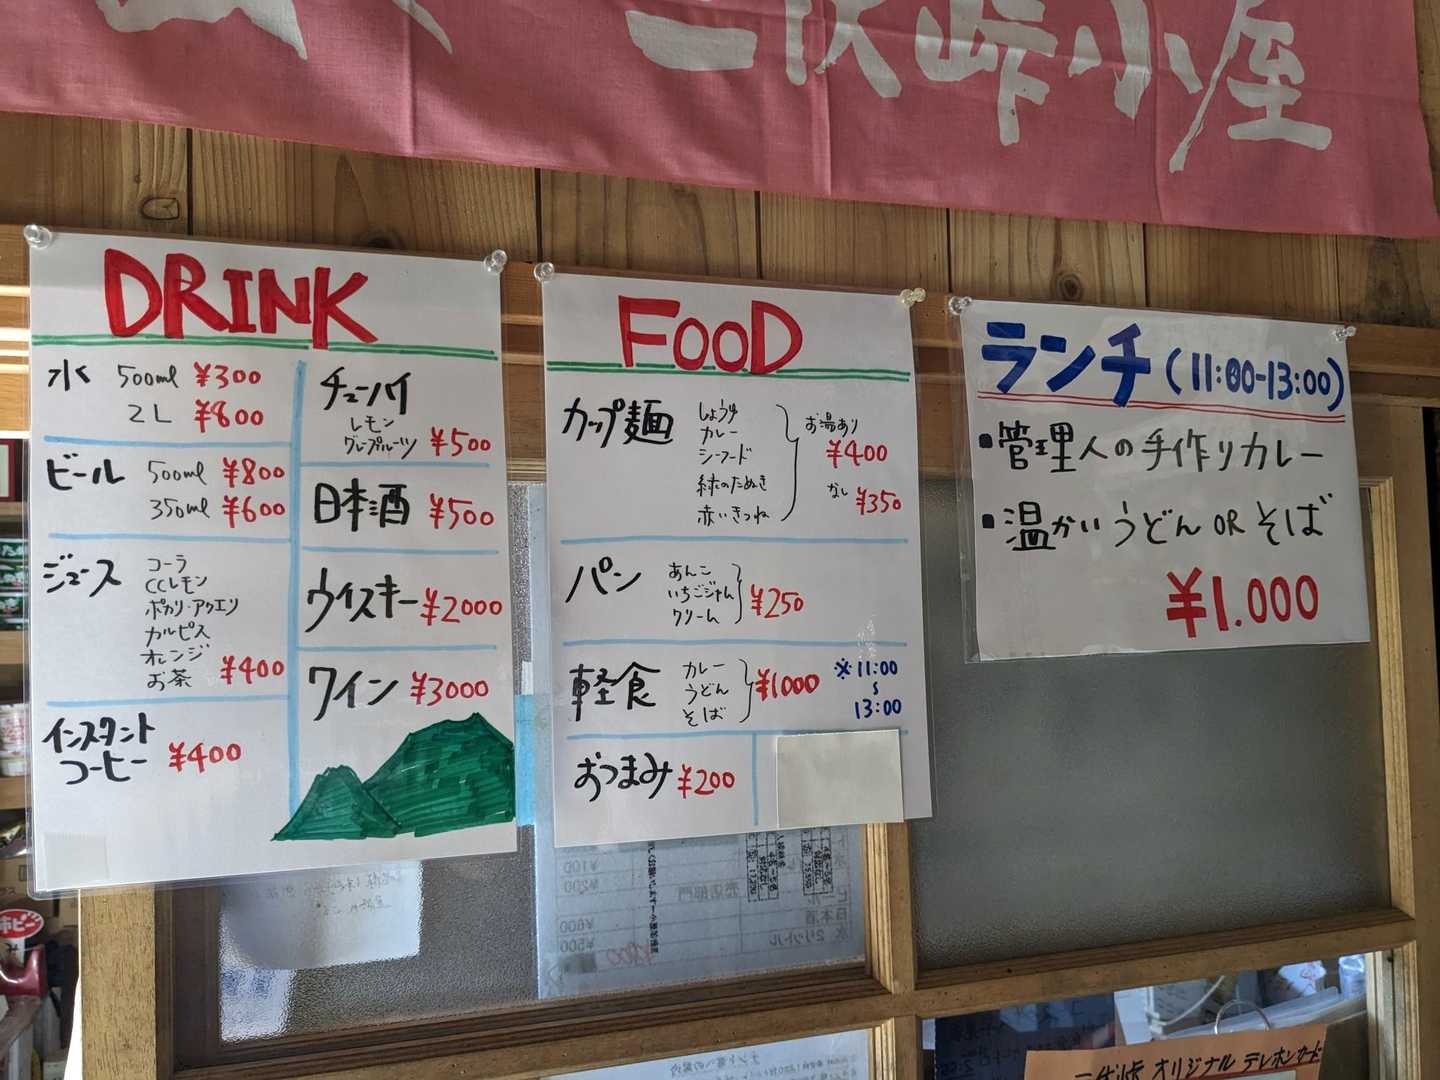 峠小屋
DRINK
水 500ml ¥300
2L ¥800
ビール 500ml ¥800
350ml ¥600
ジュース コーラ
CCレモン
ポカリ・アクエリ
カルピス
オレンジ
お茶 ¥400
インスタント
コーヒー ¥400
チューハイ
レモン
グレープフルーツ ¥500
日本酒 ¥500
ウイスキー ¥2000
ワイン ¥3000
FOOD
カップ麺 しょうゆ
カレー
シーフード
緑のたぬき
赤いきつね
お湯あり
¥400
なし ¥350
パン あんこ
いちごジャム
クリーム
¥250
軽食 カレー
うどん
そば
¥1000
※11:00
~
13:00
おつまみ ¥200
ランチ (11:00-13:00)
・管理人の手作りカレー
・温かいうどん OR そば
¥1.000
オリジナル テレホンカード